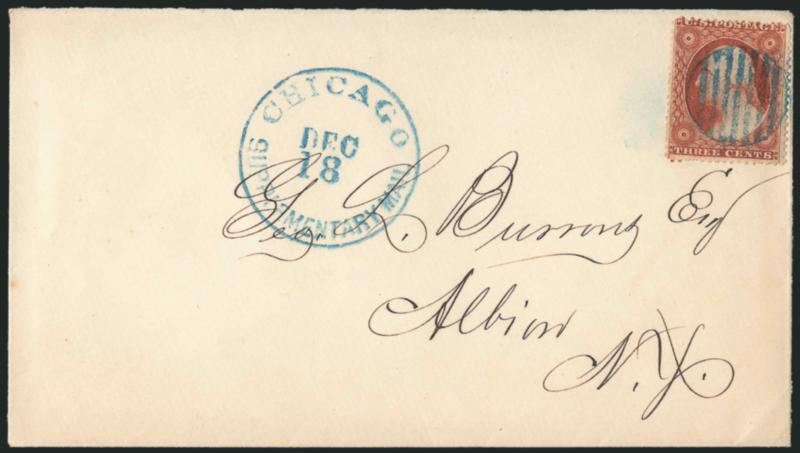 CHICAGO
DEC
18
SUPPLEMENTARY MAIL
U.S. POSTAGE
THREE CENTS
Geo. L. Burrows Esq
Albion
N.Y.